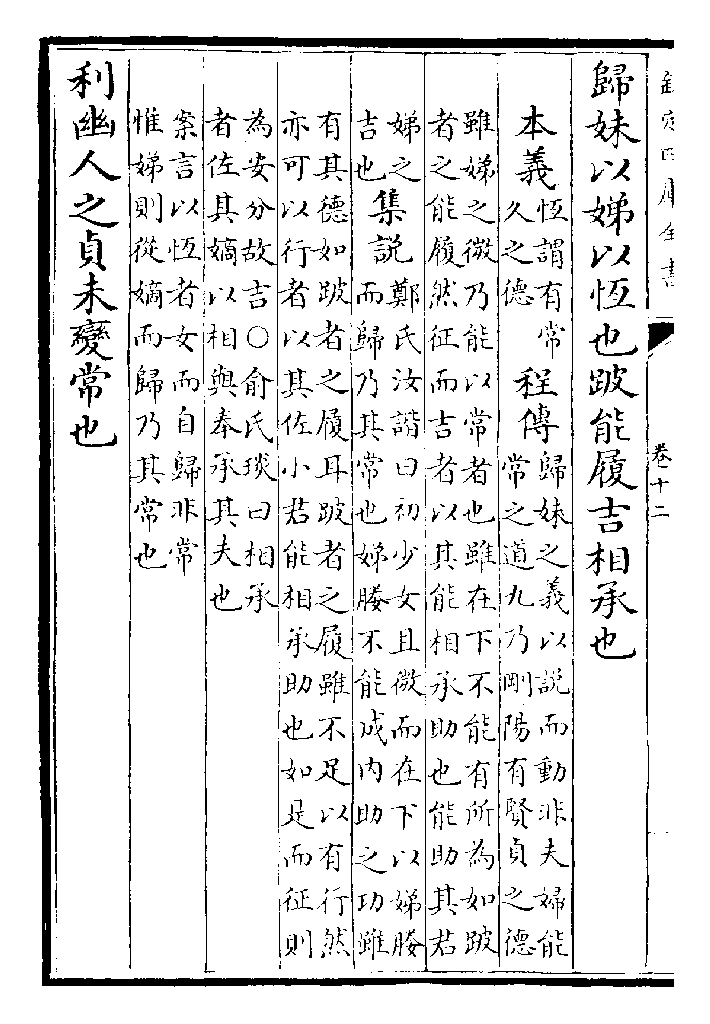 欽定四庫全書
卷十二
歸妹以娣以恆也跛能履吉相承也
本義
恆謂有常
久之德
程傳
歸妹之義以說而動非夫婦能
常之道九乃剛陽有賢貞之德
雖娣之微乃能以常者也雖在下不能有所為如跛
者之能履然征而吉者以其能相承助也能助其君
娣之
吉也
集說
鄭氏汝諧曰初少女且微而在下以娣媵
而歸乃其常也娣媵不能成内助之功雖
有其德如跛者之履耳跛者之履雖不足以有行然
亦可以行者以其佐小君能相承助也如是而征則
為安分故吉○俞氏琰曰相承
者佐其嫡以相與奉承其夫也
案言以恆者女而自歸非常
惟娣則從嫡而歸乃其常也
利幽人之貞未變常也